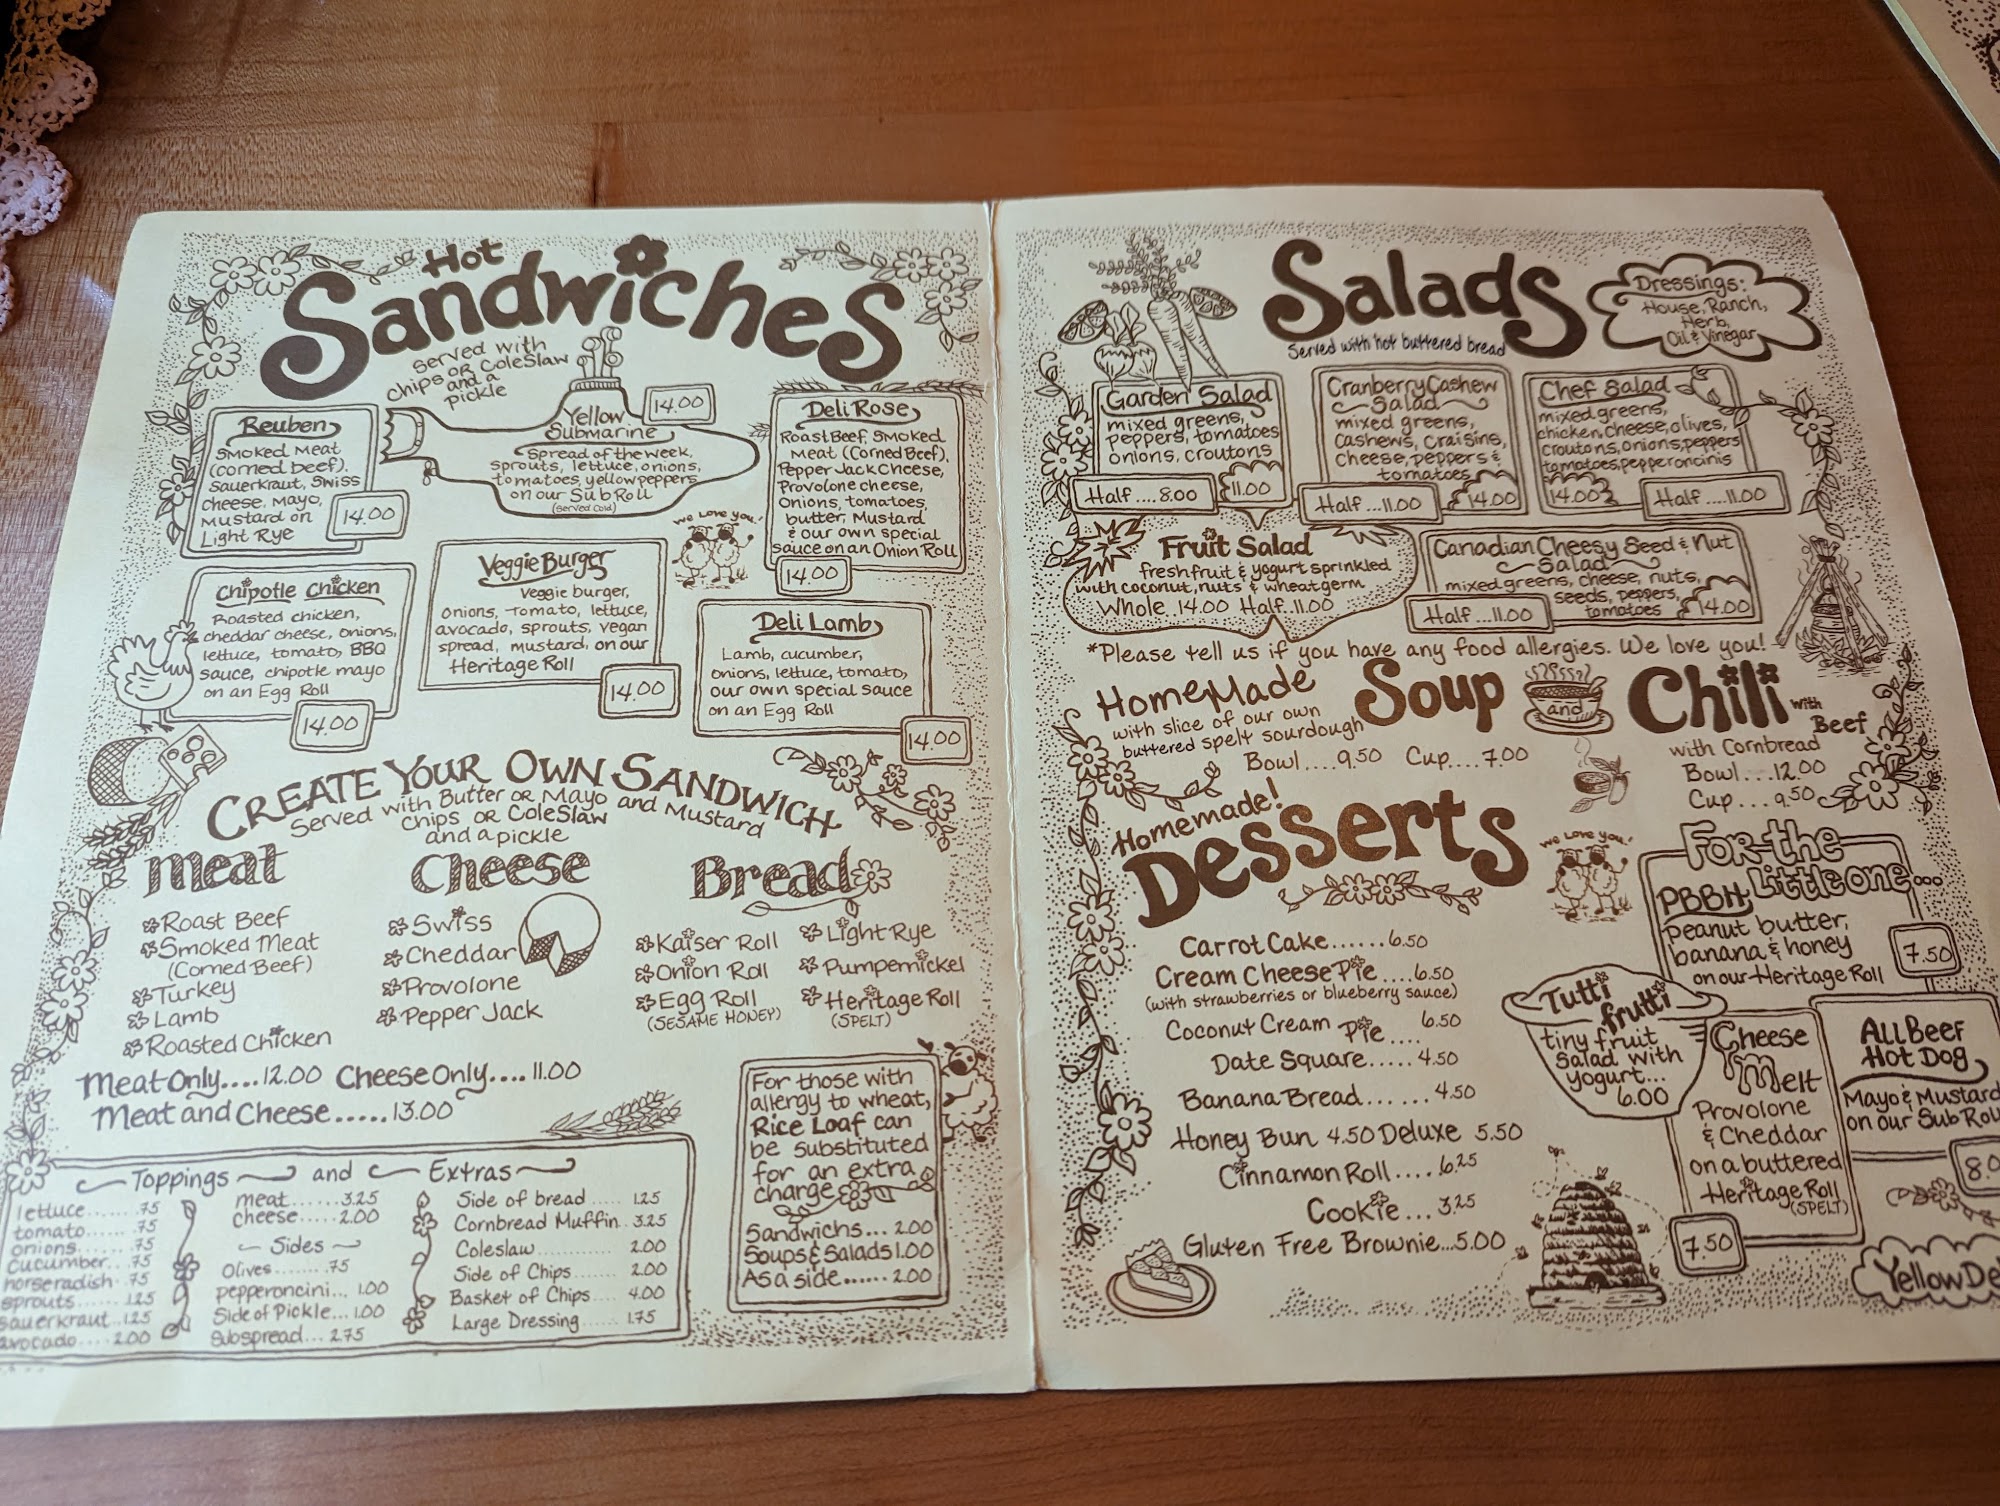 Hot
Sandwiches
served with
Chips or ColeSlaw
and a
pickle
Reuben
Smoked Meat
(corned beef),
Sauerkraut, Swiss
Cheese, Mayo,
Mustard on
Light Rye
14.00
Yellow
Submarine
14.00
Spread of the week,
sprouts, lettuce, onions,
tomatoes, yellow peppers
on our Sub Roll
(served cold)
Deli Rose
Roast Beef, Smoked
Meat (Corned Beef),
Pepper Jack Cheese,
Provolone cheese,
Onions, tomatoes,
butter, Mustard
& our own special
sauce on an Onion Roll
14.00
We Love you!
Chipotle Chicken
Roasted chicken,
cheddar cheese, onions,
lettuce, tomato, BBQ
sauce, chipotle mayo
on an Egg Roll
14.00
Veggie Burger
Veggie burger,
onions, tomato, lettuce,
avocado, sprouts, vegan
spread, mustard, on our
Heritage Roll
14.00
Deli Lamb
Lamb, cucumber,
onions, lettuce, tomato,
our own special sauce
on an Egg Roll
14.00
Create Your Own Sandwich
Served with Butter or Mayo and Mustard
Chips or ColeSlaw
and a pickle
Meat
Roast Beef
Smoked Meat
(Corned Beef)
Turkey
Lamb
Roasted Chicken
Cheese
Swiss
Cheddar
Provolone
Pepper Jack
Bread
Kaiser Roll
Onion Roll
Egg Roll
(SESAME HONEY)
Light Rye
Pumpernickel
Heritage Roll
(SPELT)
Meat Only....12.00 Cheese Only....11.00
Meat and Cheese.....13.00
Toppings and Extras
lettuce.......75
tomato......75
onions......75
cucumber...75
horseradish.75
sprouts......1.25
sauerkraut..1.25
avocado....2.00
meat.......3.25
cheese.....2.00
Sides
Olives........75
pepperoncini... 1.00
Side of Pickle...1.00
Subspread... 2.75
Side of bread..... 1.25
Cornbread Muffin.. 3.25
Coleslaw........... 2.00
Side of Chips..... 2.00
Basket of Chips.... 4.00
Large Dressing..... 1.75
For those with
allergy to wheat,
Rice Loaf can
be substituted
for an extra
charge
Sandwichs... 2.00
Soups & Salads 1.00
As a side...... 2.00
Salads
Served with hot buttered bread
Dressings:
House, Ranch,
Herb,
Oil & Vinegar
Garden Salad
mixed greens,
peppers, tomatoes
onions, croutons
Half....8.00
11.00
Cranberry Cashew
Salad
mixed greens,
cashews, craisins,
cheese, peppers &
tomatoes
Half...11.00
14.00
Chef Salad
mixed greens,
chicken, cheese, olives,
croutons, onions, peppers
tomatoes, pepperoncinis
14.00
Half....11.00
Fruit Salad
fresh fruit & yogurt sprinkled
with coconut, nuts & wheat germ
Whole..14.00 Half..11.00
Canadian Cheesy Seed & Nut
Salad
mixed greens, cheese, nuts,
seeds, peppers,
tomatoes
Half...11.00
14.00
*Please tell us if you have any food allergies. We love you!
HomeMade
with slice of our own
buttered spelt sourdough
Soup
and
Chili
with
Beef
Bowl....9.50 Cup....7.00
with Cornbread
Bowl...12.00
Cup...9.50
Homemade!
Desserts
We Love you!
Carrot Cake......6.50
Cream Cheese Pie....6.50
(with strawberries or blueberry sauce)
Coconut Cream Pie.... 6.50
Date Square.....4.50
Banana Bread......4.50
Honey Bun 4.50 Deluxe 5.50
Cinnamon Roll....6.25
Cookie...3.25
Gluten Free Brownie...5.00
For the
Little one...
PBBH
peanut butter,
banana & honey
on our Heritage Roll
7.50
Tutti
frutti
tiny fruit
salad with
yogurt...
6.00
Cheese
Melt
Provolone
& Cheddar
on a buttered
Heritage Roll
(SPELT)
7.50
All Beef
Hot Dog
Mayo & Mustard
on our Sub Rol
8.0
Yellow De